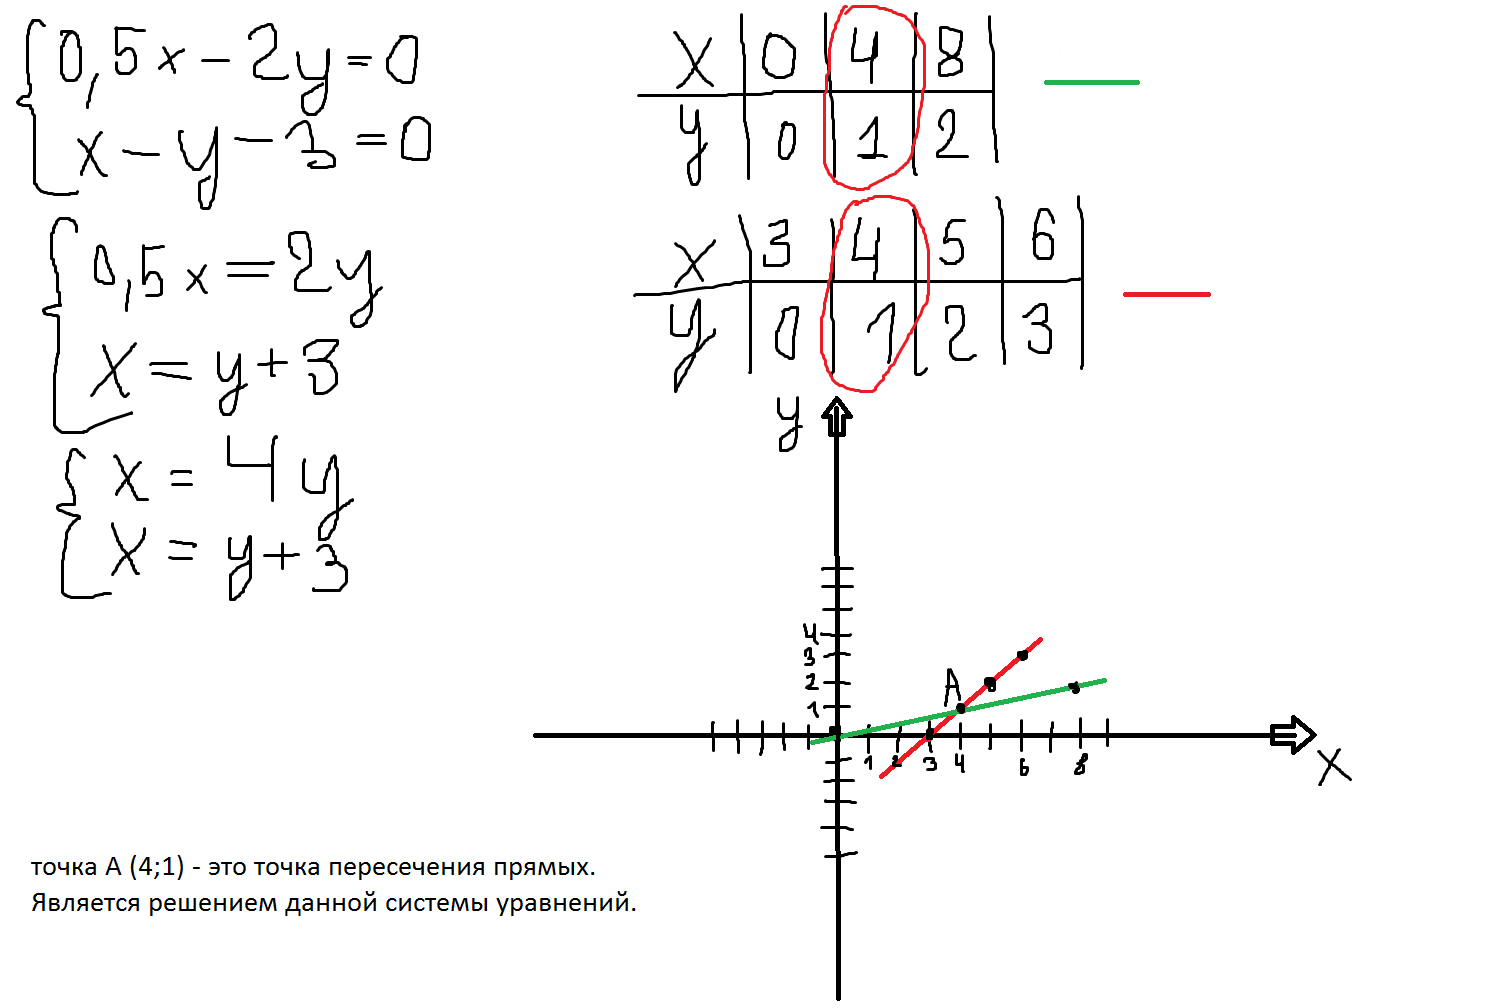 0,5x-2y=0
x-y-3=0
0,5x=2y
x=y+3
x=4y
x=y+3
x 0 4 8
y 0 1 2
x 3 4 5 6
y 0 1 2 3
y
4
3
2
1
A
1 2 3 4 6 8
x
точка А (4;1) - это точка пересечения прямых.
Является решением данной системы уравнений.